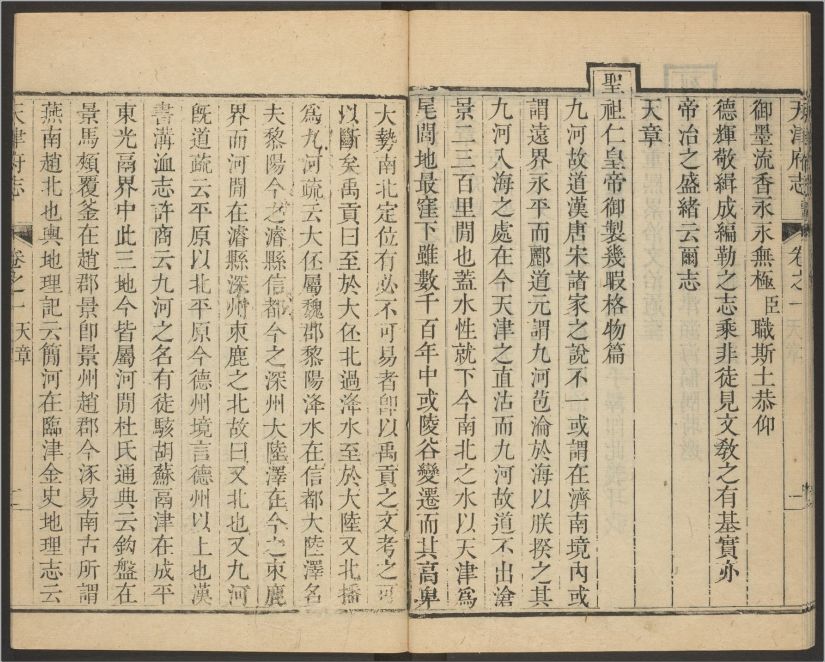 天津府志 卷之一 天章 一
御墨流香永永無極臣職斯土恭仰
德輝敬緝成編勒之志乘非徒見文教之有基實亦
帝治之盛緒云爾志
天章
聖祖仁皇帝御製幾暇格物篇
九河故道漢唐宋諸家之說不一或謂在濟南境內或
謂遠界永平而酈道元謂九河苞淪於海以朕揆之其
九河入海之處在今天津之直沽而九河故道不出滄
景二三百里間也蓋水性就下今南北之水以天津為
尾閭地最窪下雖數千百年中或陵谷變遷而其高卑
大勢南北定位有必不可易者卽以禹貢之文考之可
以斷矣禹貢曰至於大伾北過洚水至於大陸又北播
為九河疏云大伾屬魏郡黎陽洚水在信都大陸澤名
夫黎陽今之濬縣信都今之深州大陸澤在今之束鹿
界而河間在濬縣深州束鹿之北故曰又北也又九河
旣道疏云平原以北平原今德州境言德州以上也漢
書溝洫志許商云九河之名有徒駭胡蘇鬲津在成平
東光鬲界中此三地今皆屬河間杜氏通典云鈎盤在
景馬頰覆釜在趙郡景卽景州趙郡今涿易南古所謂
燕南趙北也輿地理記云簡河在臨津金史地理志云
天津府志 卷之一 天章 二